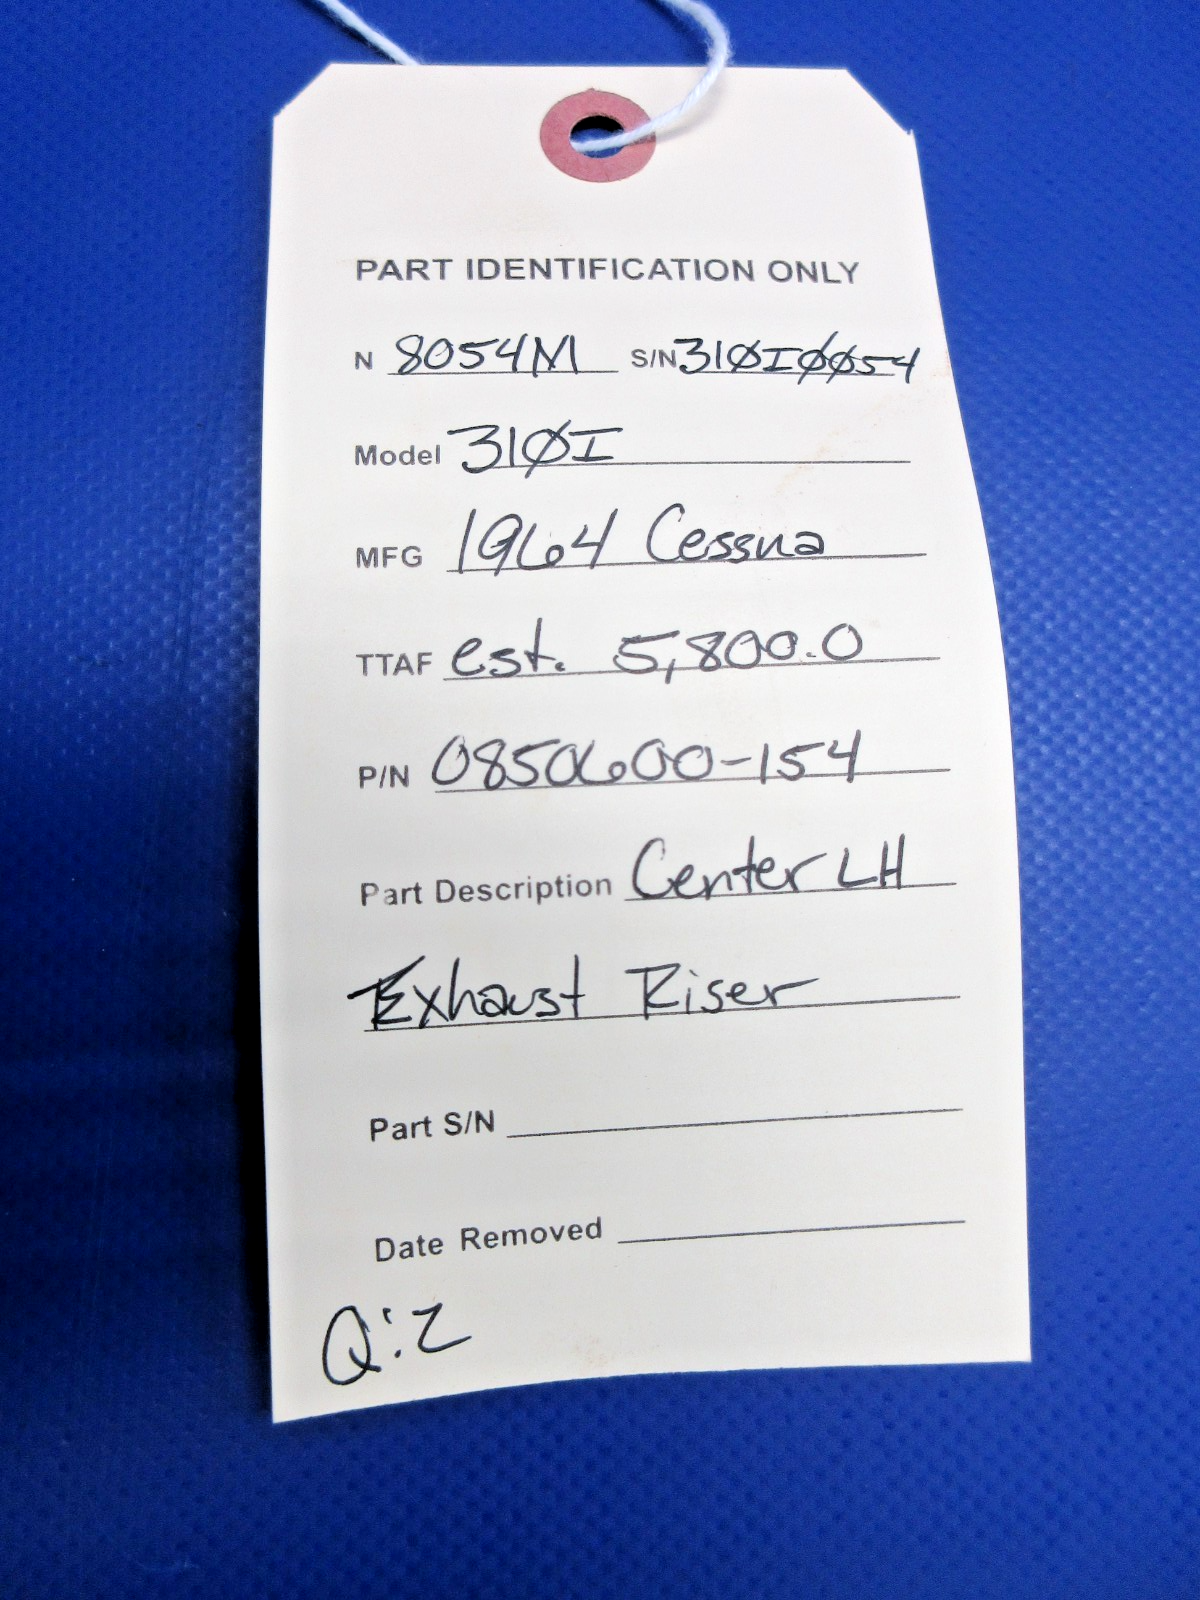 PART IDENTIFICATION ONLY
N 8054M S/N 310I0054
Model 310I
MFG 1964 Cessna
TTAF est. 5,800.0
P/N 0850600-154
Part Description Center LH
Exhaust Riser
Part S/N
Date Removed
Q:2